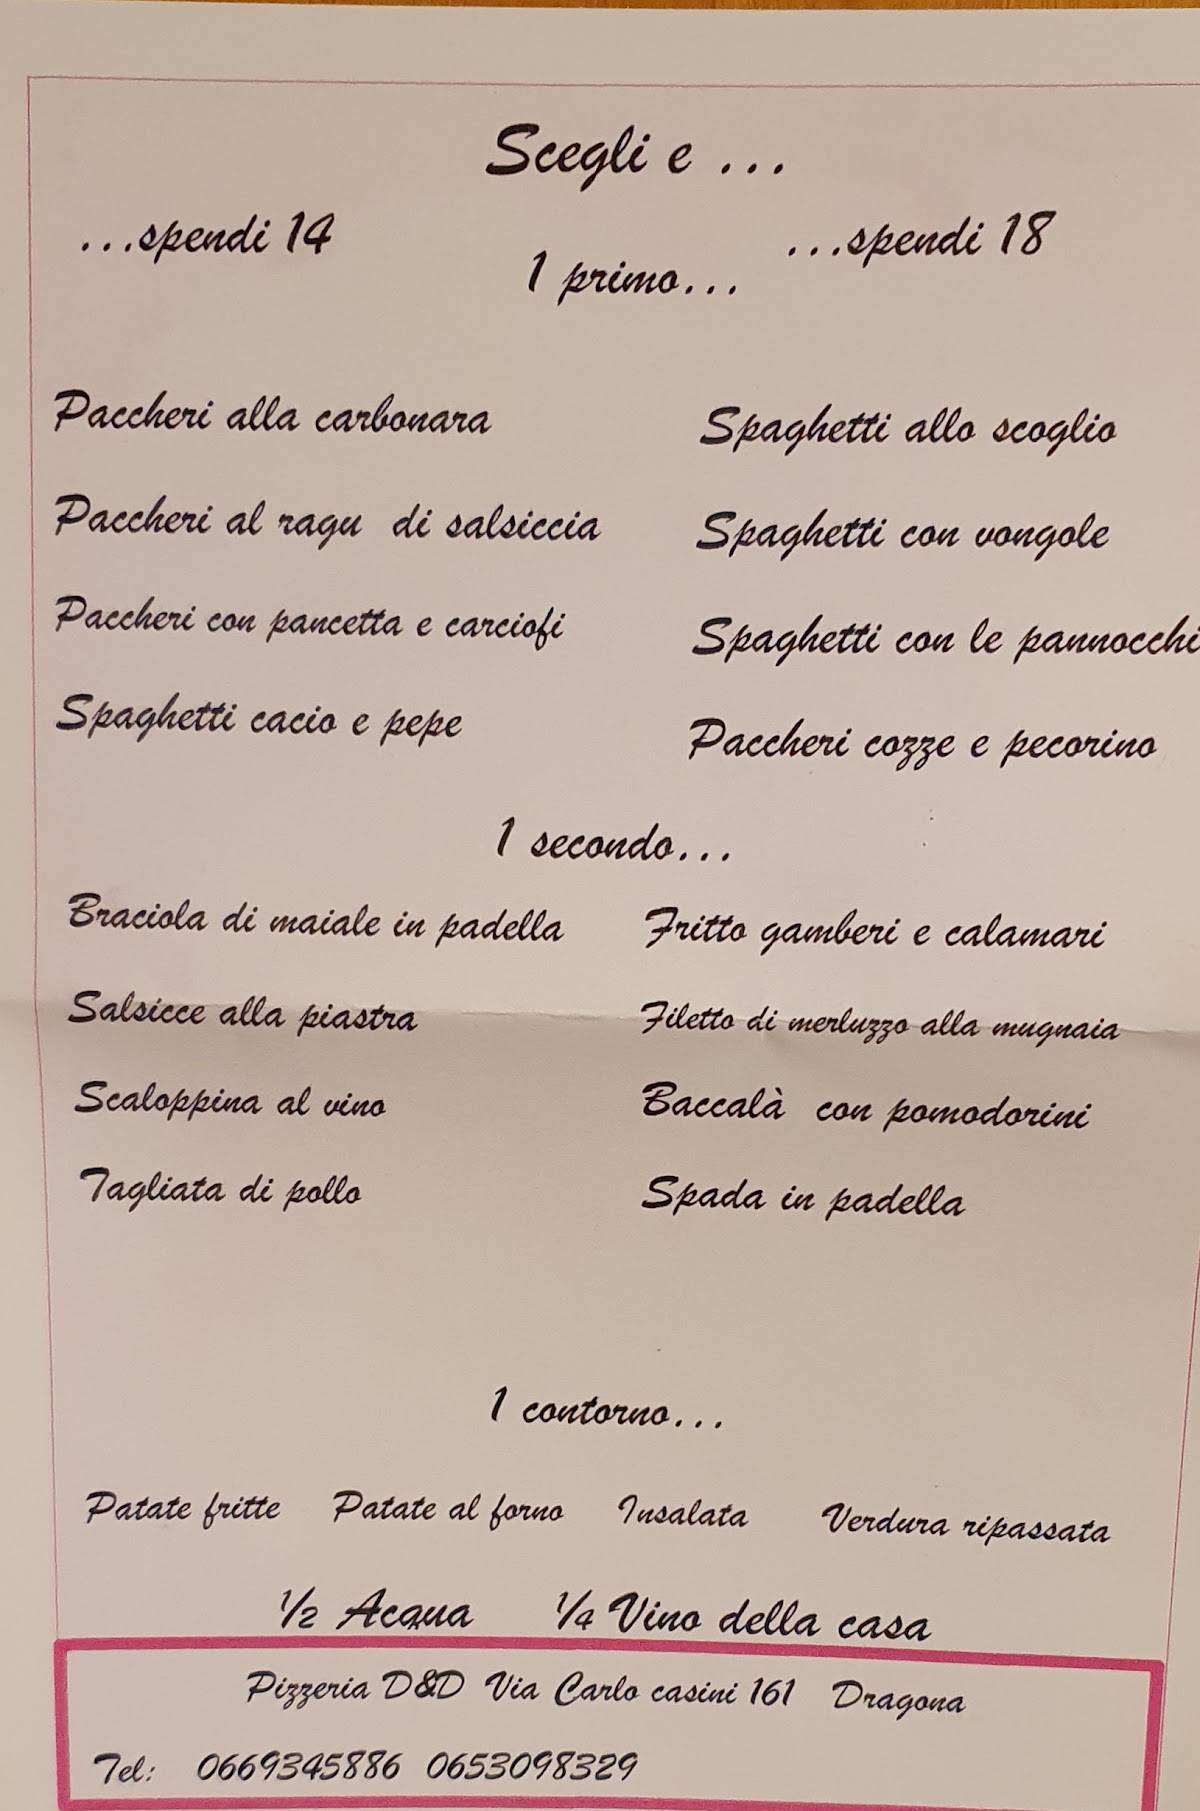 Scegli e ...
...spendi 14
...spendi 18
1 primo...
Paccheri alla carbonara
Spaghetti allo scoglio
Paccheri al ragu di salsiccia
Spaghetti con vongole
Paccheri con pancetta e carciofi
Spaghetti con le pannocchi
Spaghetti cacio e pepe
Paccheri cozze e pecorino
1 secondo...
Braciola di maiale in padella
Fritto gamberi e calamari
Salsicce alla piastra
Filetto di merluzzo alla mugnaia
Scaloppina al vino
Baccalà con pomodorini
Tagliata di pollo
Spada in padella
1 contorno...
Patate fritte Patate al forno Insalata Verdura ripassata
1/2 Acqua 1/4 Vino della casa
Pizzeria D&D Via Carlo casini 161 Dragona
Tel: 0669345886 0653098329